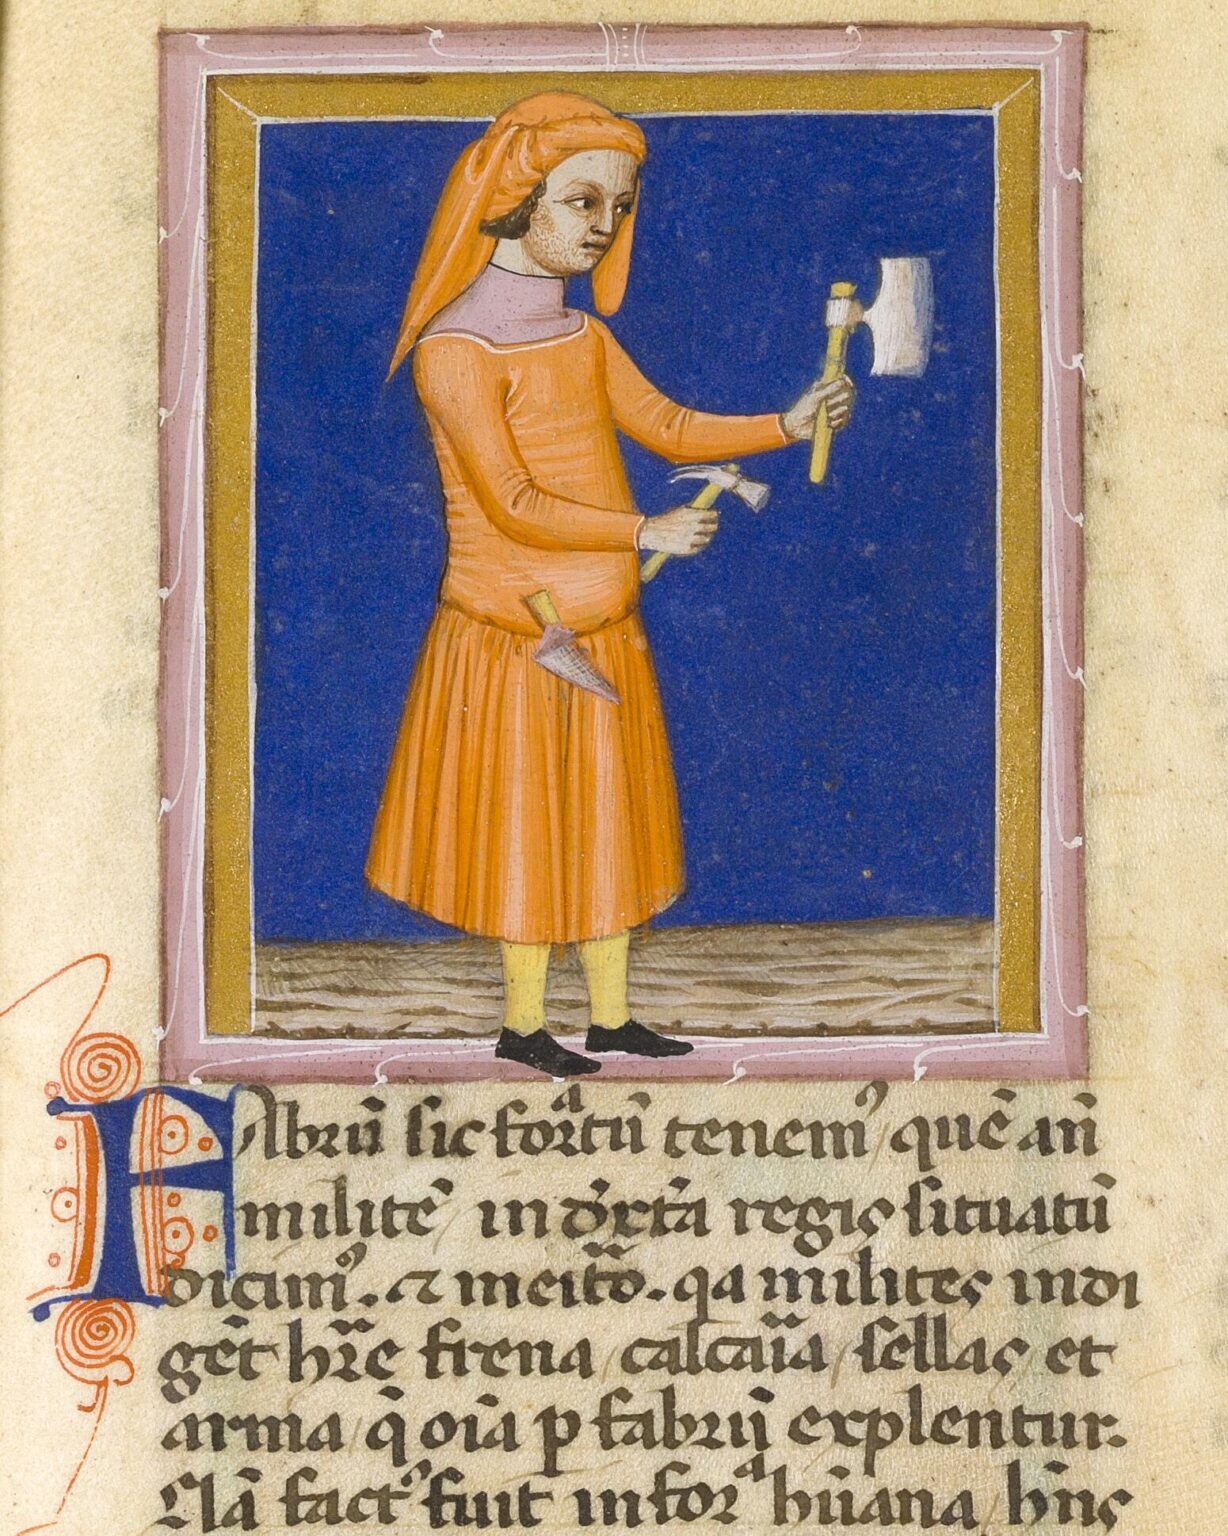 Fabrū sic fortū tenem᾿ quē an̄
militē in dext̄a regis situatū
dicim᾿. ⁊ meīto. qa milites indi
gēt hr̄e frena calcar̄ia sellas et
arma q̇ oīa p fabrū explentur.
Nā fact᾿ fuit in for hūana hn̄s